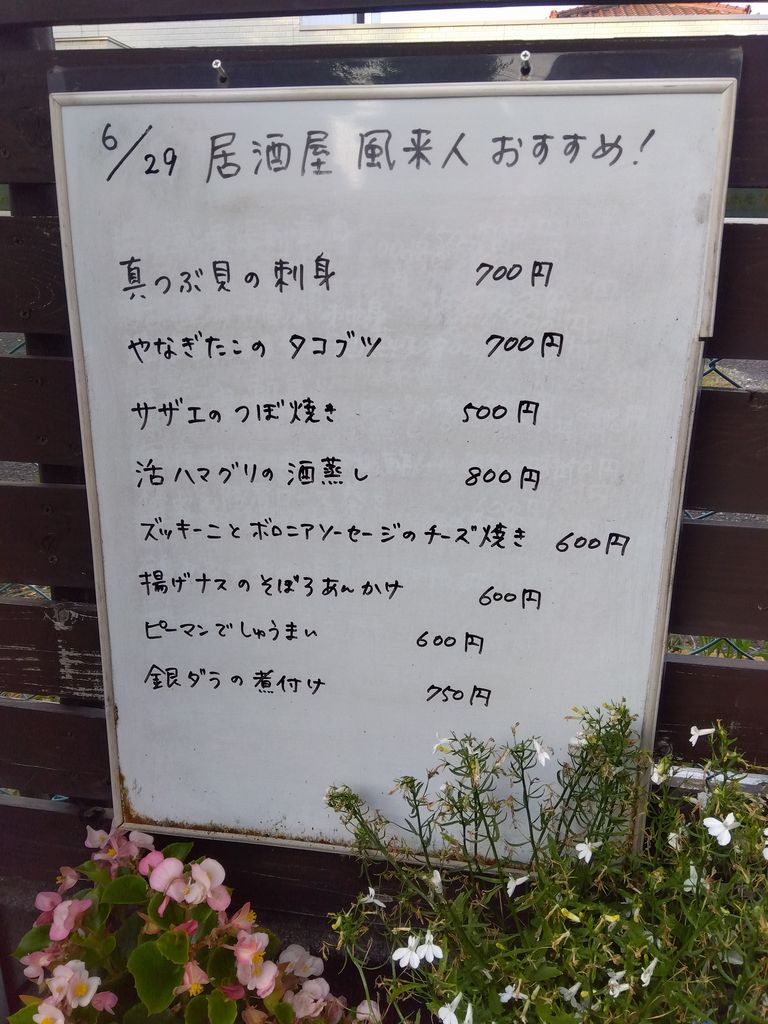 6/29 居酒屋 風来人 おすすめ!
真つぶ貝の刺身 700円
やなぎたこの タコブツ 700円
サザエのつぼ焼き 500円
活ハマグリの酒蒸し 800円
ズッキーニとボロニアソーセージのチーズ焼き 600円
揚げナスのそぼろあんかけ 600円
ピーマンでしゅうまい 600円
銀ダラの煮付け 750円